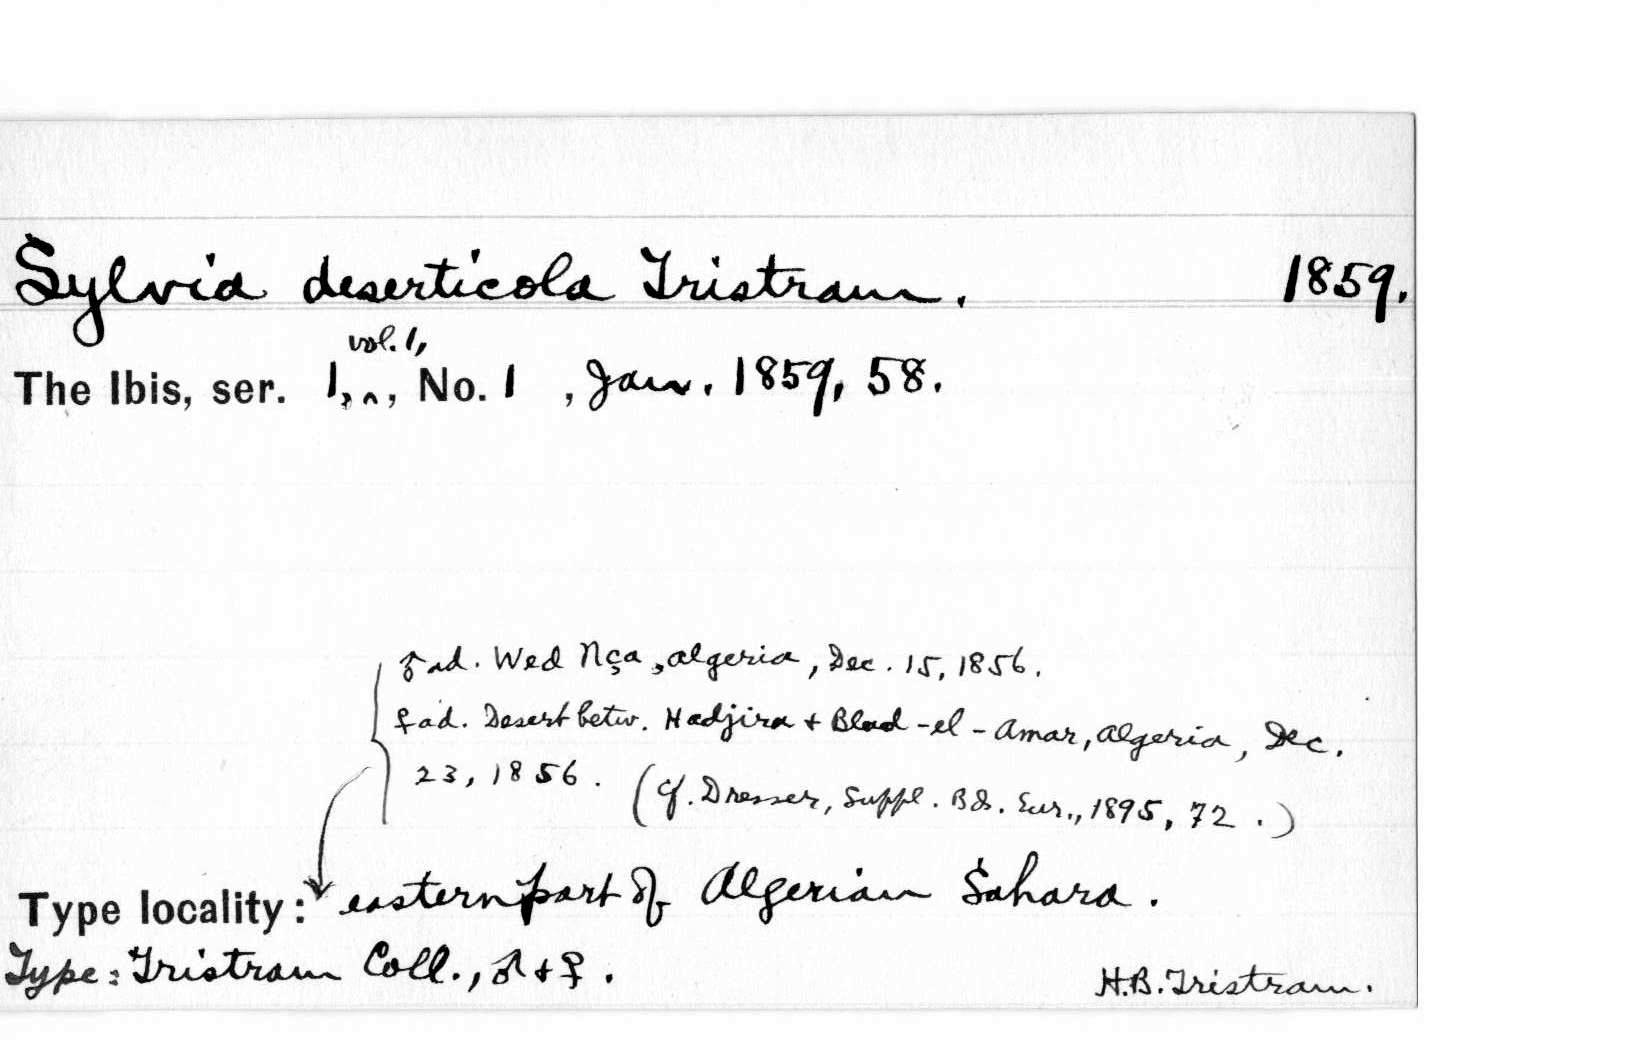 Sylvia deserticola Tristram. 1859.
vol. 1,
The Ibis, ser. 1, ^, No. 1 , Jan. 1859, 58.
♂ ad. Wed Nça, Algeria, Dec. 15, 1856.
♀ ad. Desert betw. Hadjira + Blad-el-Amar, Algeria, Dec.
23, 1856. (Cf. Dresser, Suppl. Bds. Eur., 1895, 72.)
Type locality: eastern part of Algerian Sahara.
Type: Tristram Coll., ♂ + ♀.
H.B. Tristram.